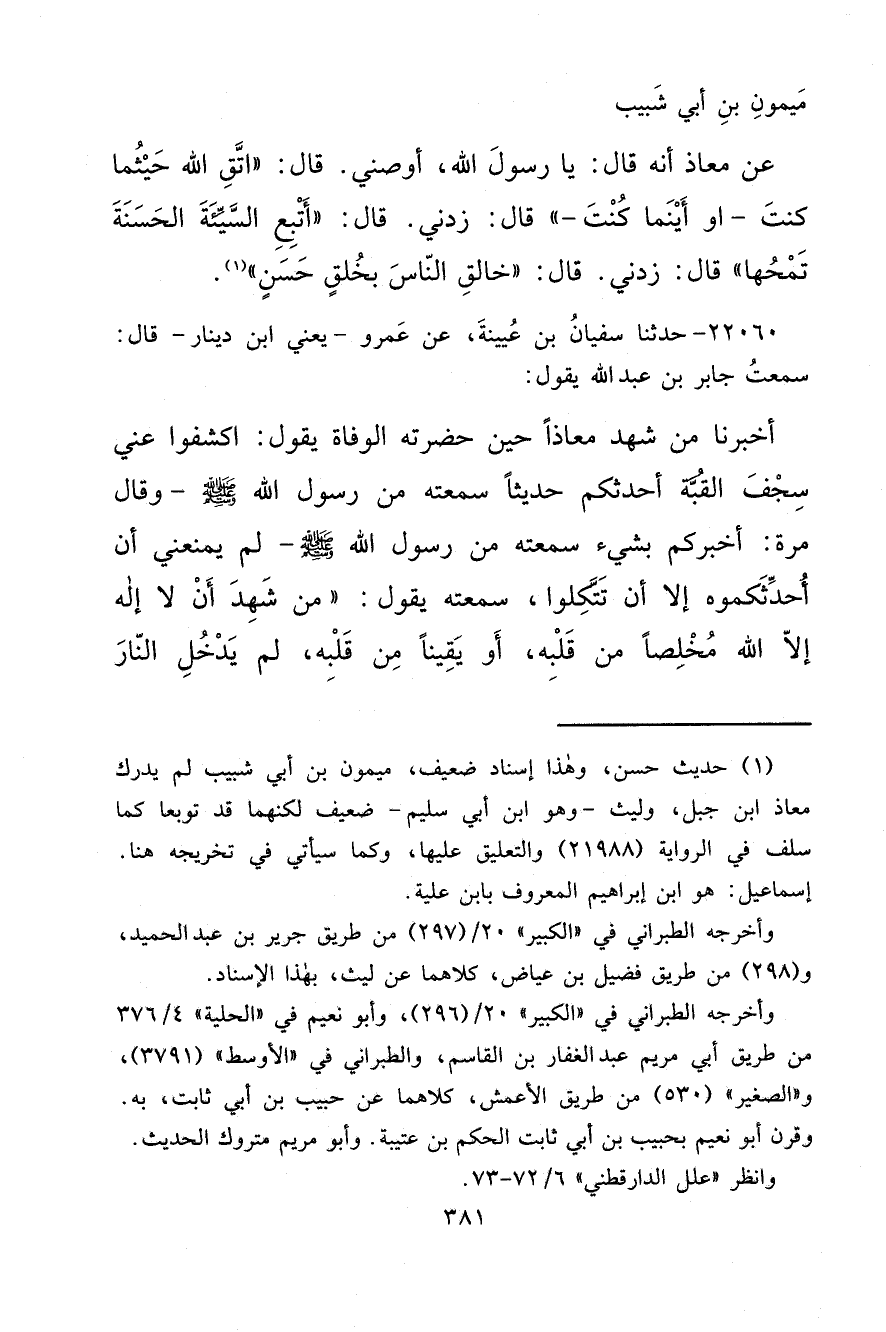 مَيمونِ بنِ أبي شَبيب
عن معاذ أنه قال: يا رسولَ الله، أوصني. قال: «اتَّقِ الله حَيْثُما
كنتَ - او أَيْنَما كُنْتَ -» قال: زدني. قال: «أَتْبِعِ السَّيِّئَةَ الحَسَنَةَ
تَمْحُها» قال: زدني. قال: «خالقِ النّاسَ بخُلقٍ حَسَنٍ»(١).
٢٢٠٦٠- حدثنا سفيانُ بن عُيينةَ، عن عَمرو - يعني ابن دينار - قال:
سمعتُ جابر بن عبدالله يقول:
أخبرنا من شهد معاذاً حين حضرته الوفاة يقول: اكشفوا عني
سِجْفَ القُبَّة أحدثكم حديثاً سمعته من رسول الله ﷺ - وقال
مرة: أخبركم بشيء سمعته من رسول الله ﷺ - لم يمنعني أن
أُحدِّثَكموه إلا أن تَتَّكِلوا، سمعته يقول: «من شَهِدَ أَنْ لا إلٰه
إلاّ الله مُخْلِصاً من قَلْبِه، أَو يَقِيناً مِن قَلْبِه، لم يَدْخُلِ النّارَ
(١) حديث حسن، وهٰذا إسناد ضعيف، ميمون بن أبي شبيب لم يدرك
معاذ ابن جبل، وليث - وهو ابن أبي سليم - ضعيف لكنهما قد توبعا كما
سلف في الرواية (٢١٩٨٨) والتعليق عليها، وكما سيأتي في تخريجه هنا.
إسماعيل: هو ابن إبراهيم المعروف بابن علية.
وأخرجه الطبراني في «الكبير» ٢٠/(٢٩٧) من طريق جرير بن عبدالحميد،
و(٢٩٨) من طريق فضيل بن عياض، كلاهما عن ليث، بهٰذا الإسناد.
وأخرجه الطبراني في «الكبير» ٢٠/(٢٩٦)، وأبو نعيم في «الحلية» ٤/ ٣٧٦
من طريق أبي مريم عبدالغفار بن القاسم، والطبراني في «الأوسط» (٣٧٩١)،
و«الصغير» (٥٣٠) من طريق الأعمش، كلاهما عن حبيب بن أبي ثابت، به.
وقرن أبو نعيم بحبيب بن أبي ثابت الحكم بن عتيبة. وأبو مريم متروك الحديث.
وانظر «علل الدارقطني» ٦/ ٧٢-٧٣.
٣٨١